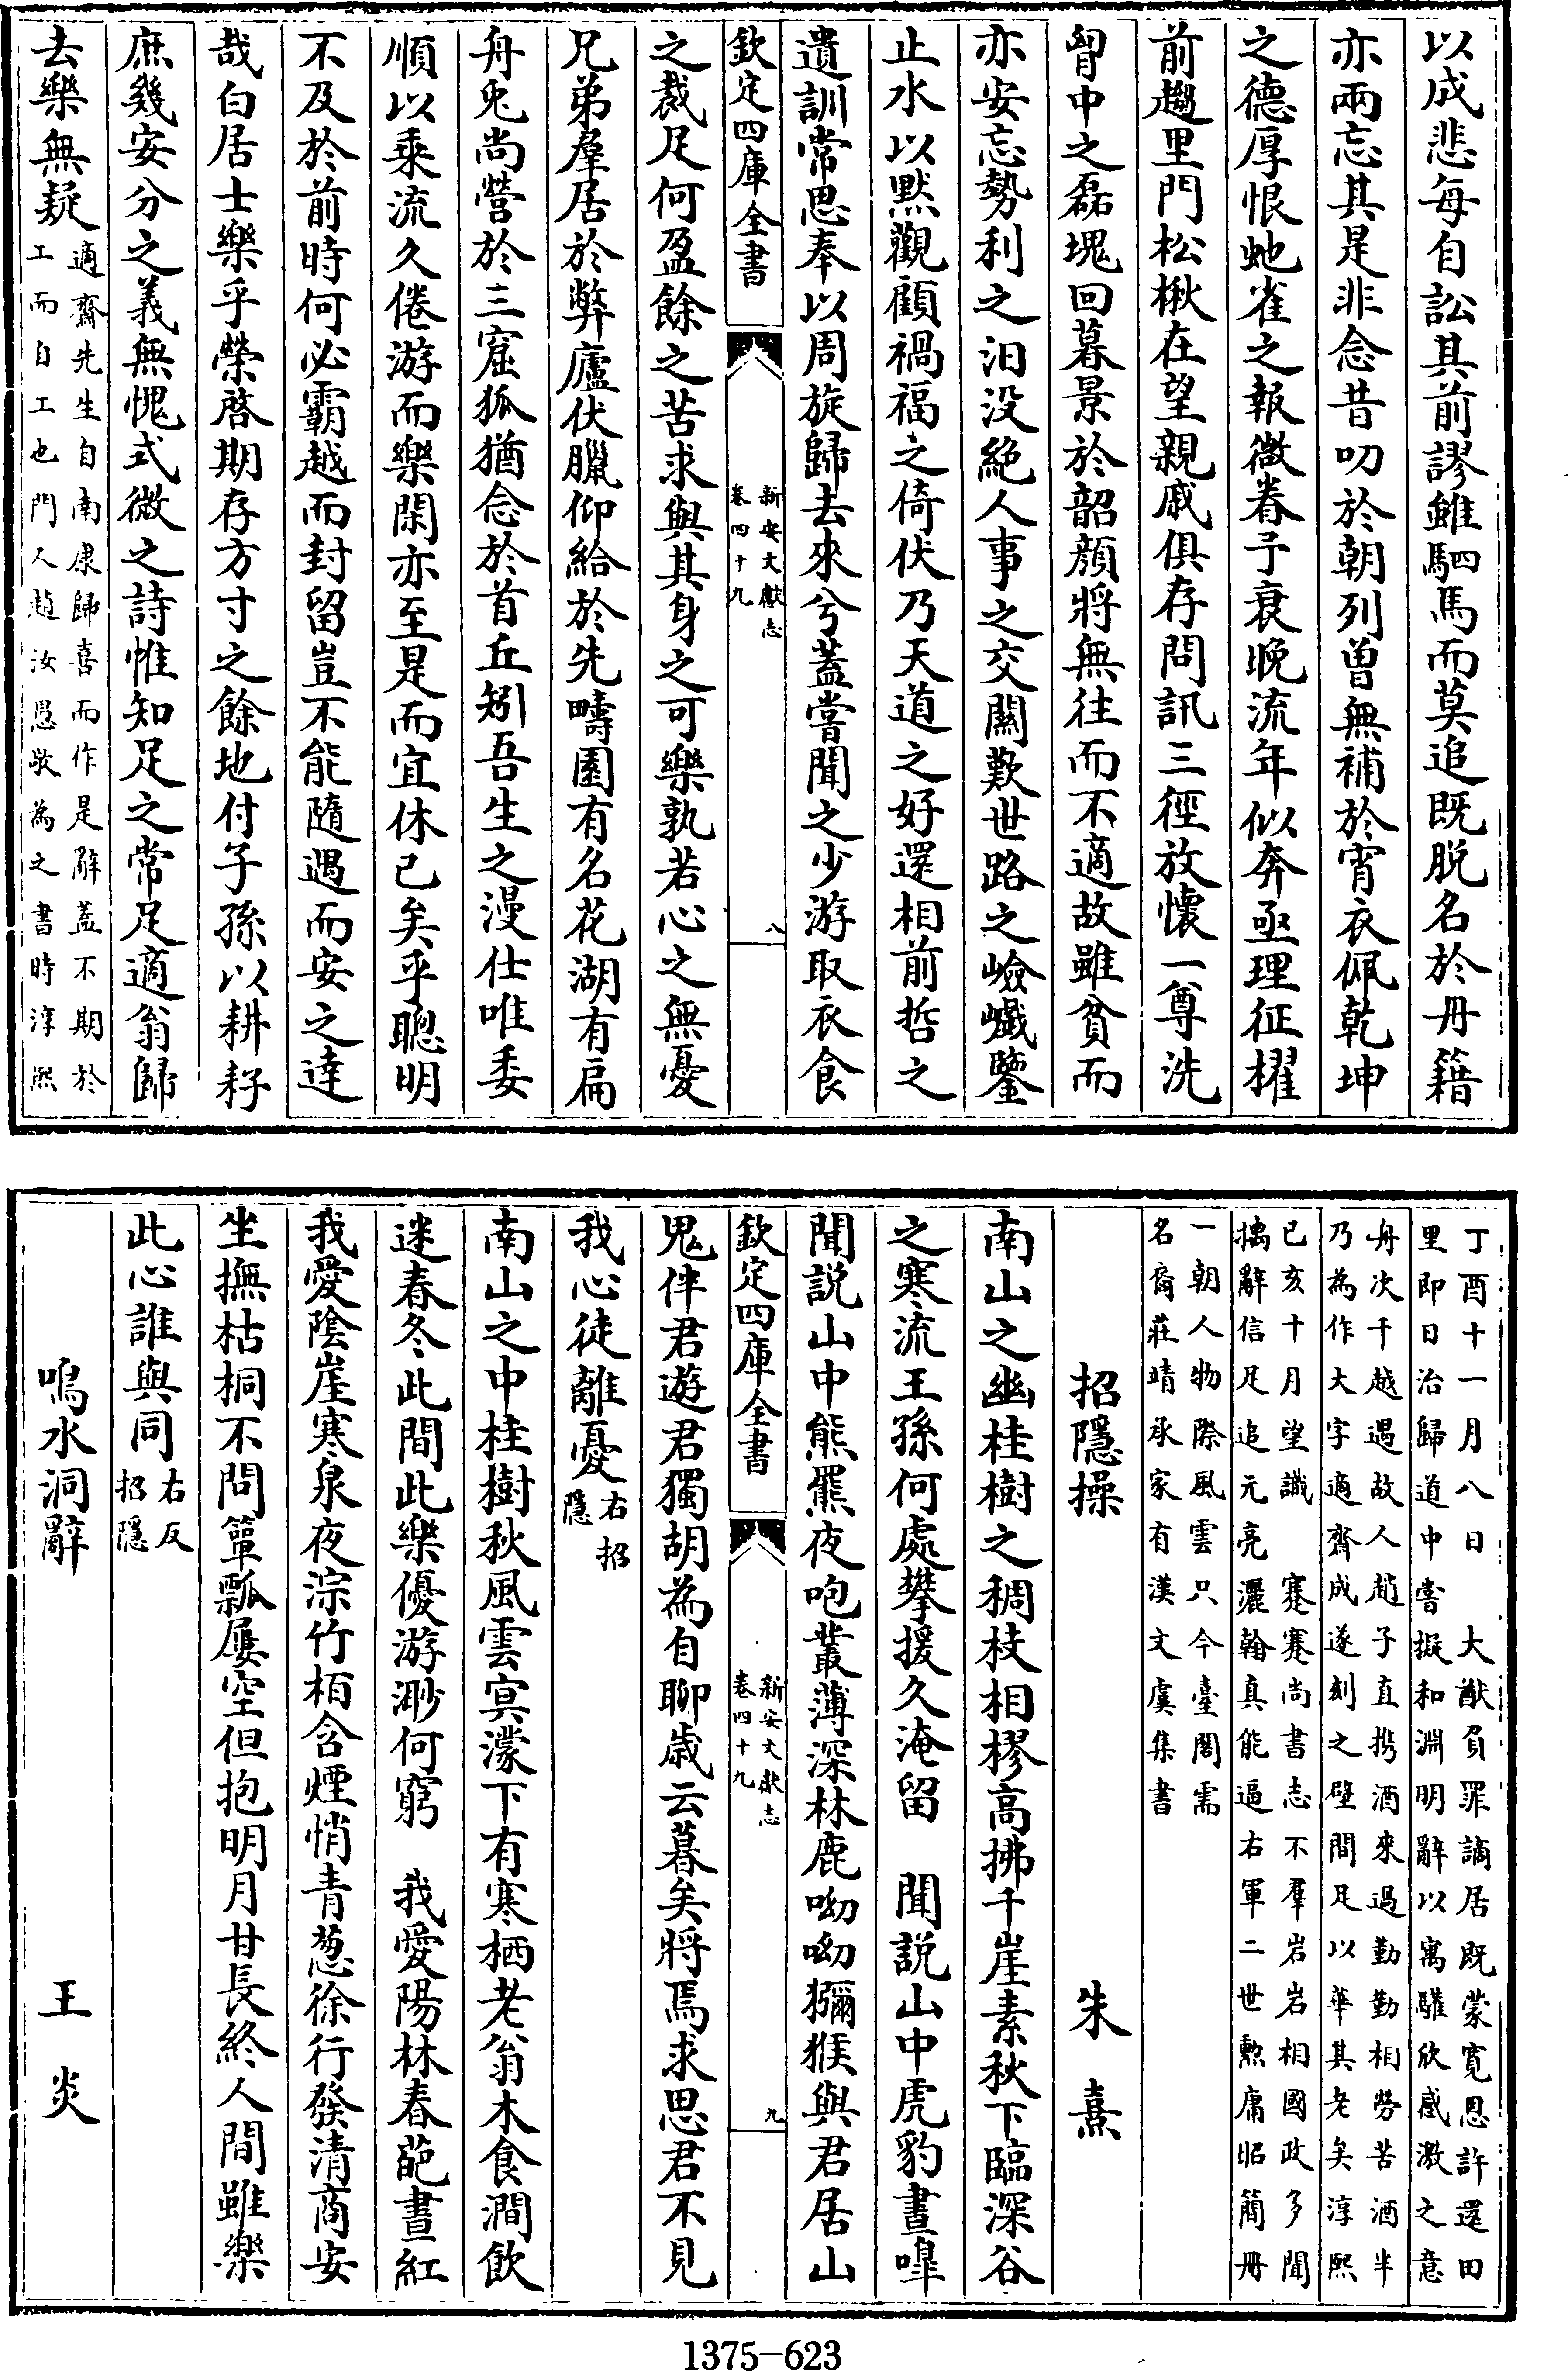 以成悲每自訟其前謬雖駟馬而莫追既脱名於丹籍
亦兩忘其是非念昔叨於朝列曽無補於宵衣佩乾坤
之德厚恨虵雀之報微眷予衰晩流年似奔亟理征櫂
前趨里門松楸在望親戚俱存問訊三徑放懐一尊洗
胷中之磊塊回暮景於韶顔將無往而不適故雖貧而
亦安忘勢利之汨没絶人事之交闗歎世路之嶮巇鑒
止水以黙觀顧禍福之倚伏乃天道之好還相前哲之
遺訓常思奉以周旋歸去來兮蓋嘗聞之少游取衣食
欽定四庫全書
新安文獻志
卷四十九
八
之裁足何盈餘之苦求與其身之可樂孰若心之無憂
兄弟羣居於弊廬伏臘仰給於先疇園有名花湖有扁
舟兎尚營於三窟狐猶念於首丘矧吾生之漫仕唯委
順以乗流久倦游而樂閑亦至是而宜休已矣乎聰明
不及於前時何必霸越而封留豈不能隨遇而安之達
哉白居士樂乎榮啓期存方寸之餘地付子孫以耕耔
庶幾安分之義無愧式微之詩惟知足之常足適翁歸
去樂無疑
適齋先生自南康歸喜而作是辭蓋不期於
工而自工也門人趙汝愚敬為之書時淳熙
丁酉十一月八日 大猷負罪謫居既蒙寛恩許還田
里即日治歸道中嘗擬和淵明辭以寓驩欣感激之意
舟次千越遇故人趙子直携酒來過勤勤相勞苦酒半
乃為作大字適齋成遂刻之壁間足以華其老矣淳熙
已亥十月望識 蹇蹇尚書志不羣岩岩相國政多聞
摛辭信足追元亮灑翰真能逼右軍二世勲庸昭簡冊
一朝人物際風雲只今臺閣需
名裔莊靖承家有漢文虞集書
招隱操 朱熹
南山之幽桂樹之稠枝相樛髙拂千崖素秋下臨深谷
之寒流王孫何處攀援久淹留 聞説山中虎豹晝嘷
聞説山中熊羆夜咆叢薄深林鹿呦呦獼猴與君居山
欽定四庫全書
新安文獻志
卷四十九
九
鬼伴君遊君獨胡為自聊歳云暮矣將焉求思君不見
我心徒離憂
右招
隱
南山之中桂樹秋風雲㝠濛下有寒栖老翁木食澗飲
迷春冬此間此樂優游渺何窮 我愛陽林春葩晝紅
我愛隂崖寒泉夜淙竹栢含煙悄青葱徐行發清商安
坐撫枯桐不問簞瓢屢空但抱明月甘長終人間雖樂
此心誰與同
右反
招隱
鳴水洞辭 王炎
1375-623